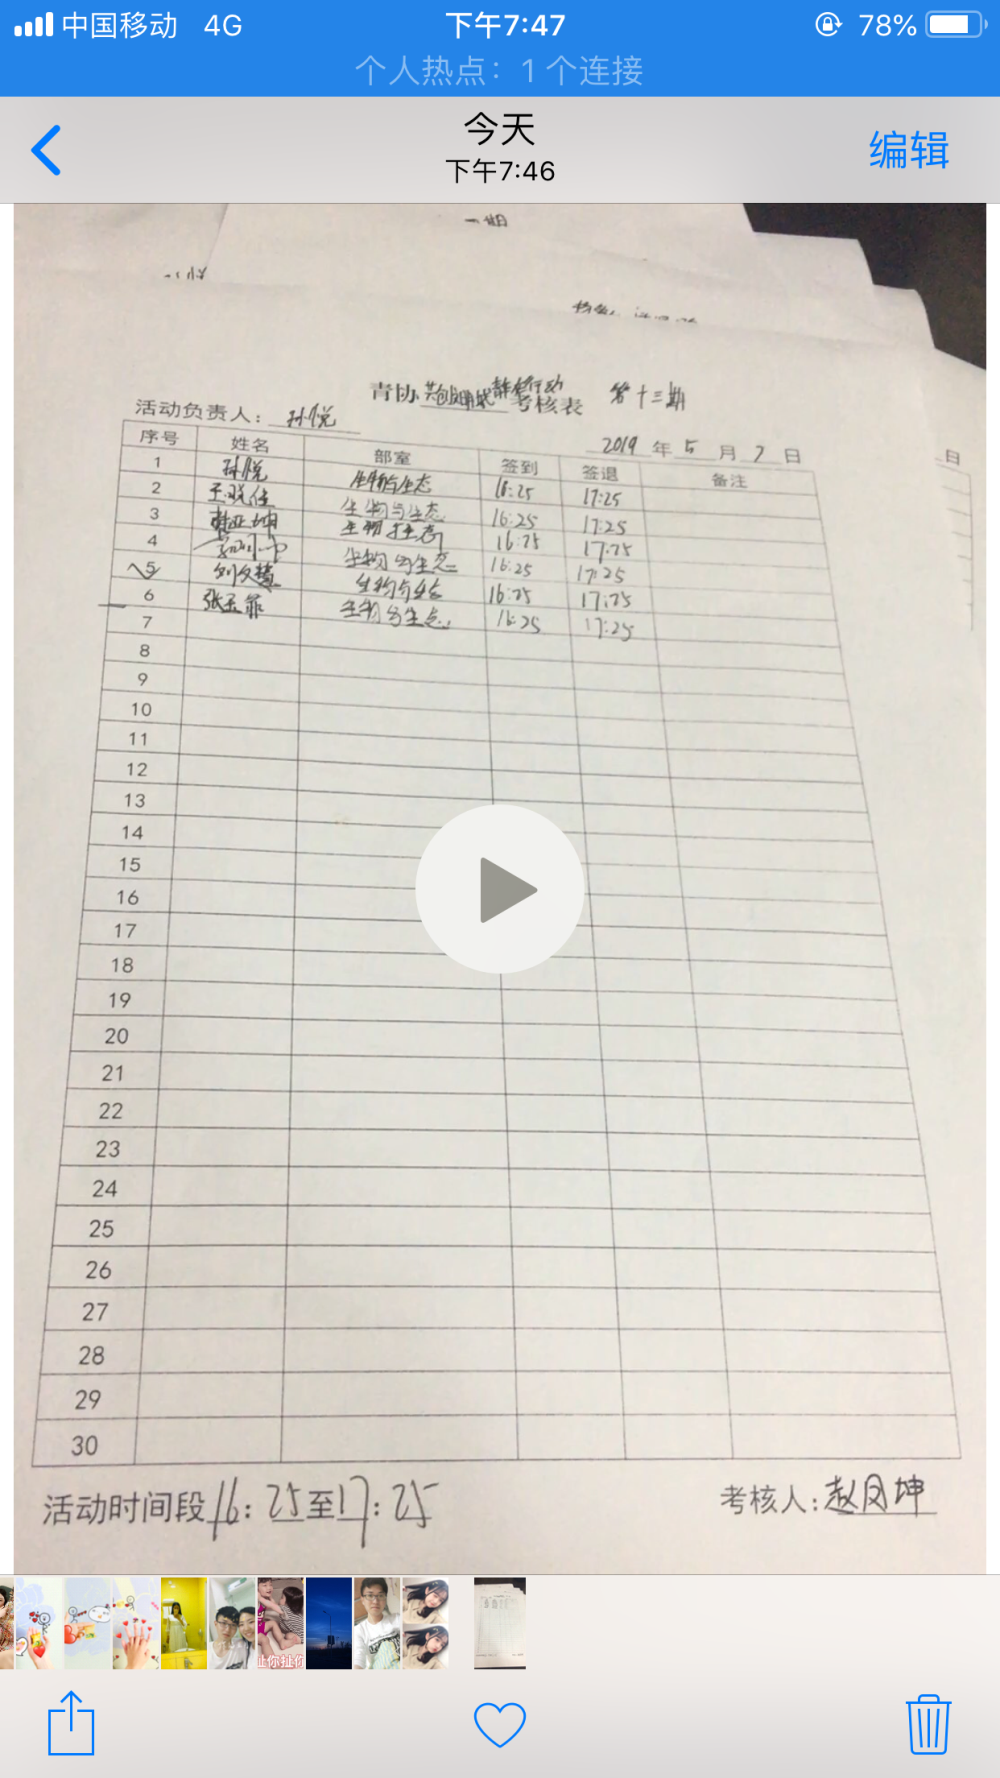 中国移动 4G 下午7:47 78%
个人热点：1 个连接
今天
下午7:46
编辑
一期
青协 静 行动 考核表 第十三期
活动负责人：孙悦
2019 年 5 月 7 日
日
序号 姓名 部室 签到 签退 备注
1 孙悦 生物与生态 16:25 17:25
2 生物与生态 16:25 17:25
3 坤 生物 生态 16:25 17:25
4 生物与生态 16:25 17:25
5 刘文慧 生物与生态 16:25 17:25
6 张玉 生物与生态 16:25 17:25
7
8
9
10
11
12
13
14
15
16
17
18
19
20
21
22
23
24
25
26
27
28
29
30
活动时间段16：25至17：25 考核人：赵凤坤